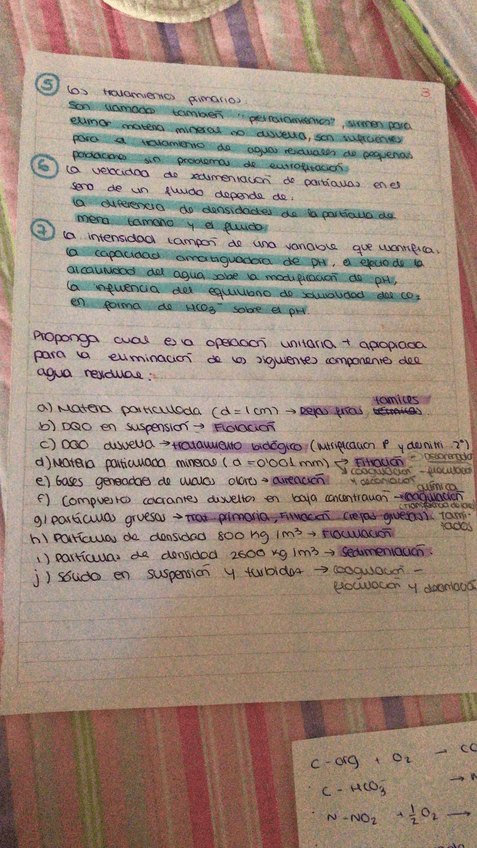 3
⑤ Los tratamientos primarios:
Son llamados tambien "pretratamientos", sirven para
eliminar materia mineral no disuelta, son suficientes
para el tratamiento de aguas residuales de pequeñas
poblaciones sin problemas de eutrofización
⑥ La velocidad de sedimentación de partículas en el
seno de un fluido depende de:
La diferencia de densidades de la partícula de
menor tamaño y el fluido
⑦ La intensidad tampón de una variable que cuantifica:
La capacidad amortiguadora de pH, el efecto de la
alcalinidad del agua sobre la modificación de pH,
La influencia del equilibrio de solubilidad del CO2
en forma de HCO3 sobre el pH
Proponga cual es la operación unitaria + apropiada
para la eliminación de los siguientes componente del
agua residual:
a) Materia particulada (d = 1cm) → Rejas finas tamices
b) DQO en suspensión → Flotación
c) DQO disuelta → tratamiento biológico (Nitrificación 1º y desnitri. 2º)
d) Materia particulada mineral (d = 0'001 mm) → Filtración
coagulación - floculación
y decantación
e) Gases generados de malos olores → aireación
f) Compuestos colorantes disueltos en baja concentración → coagulación química
g) partículas gruesas → Trat primario, Filtración (rejas gruesas). Tamizados
h) Partículas de densidad 800 kg/m3 → Floculación
i) Partículas de densidad 2600 kg/m3 → Sedimentación.
j) Sólido en suspensión y turbidez → coagulación -
floculación y decantación
C-org + O2 → CO
C-HCO3 →
N-NO2 + 1/2 O2 →